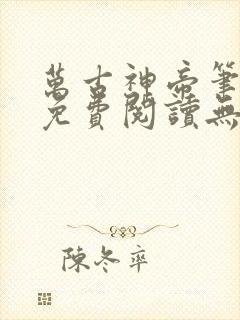 萬古神帝筆
免費閱讀無
陳冬率